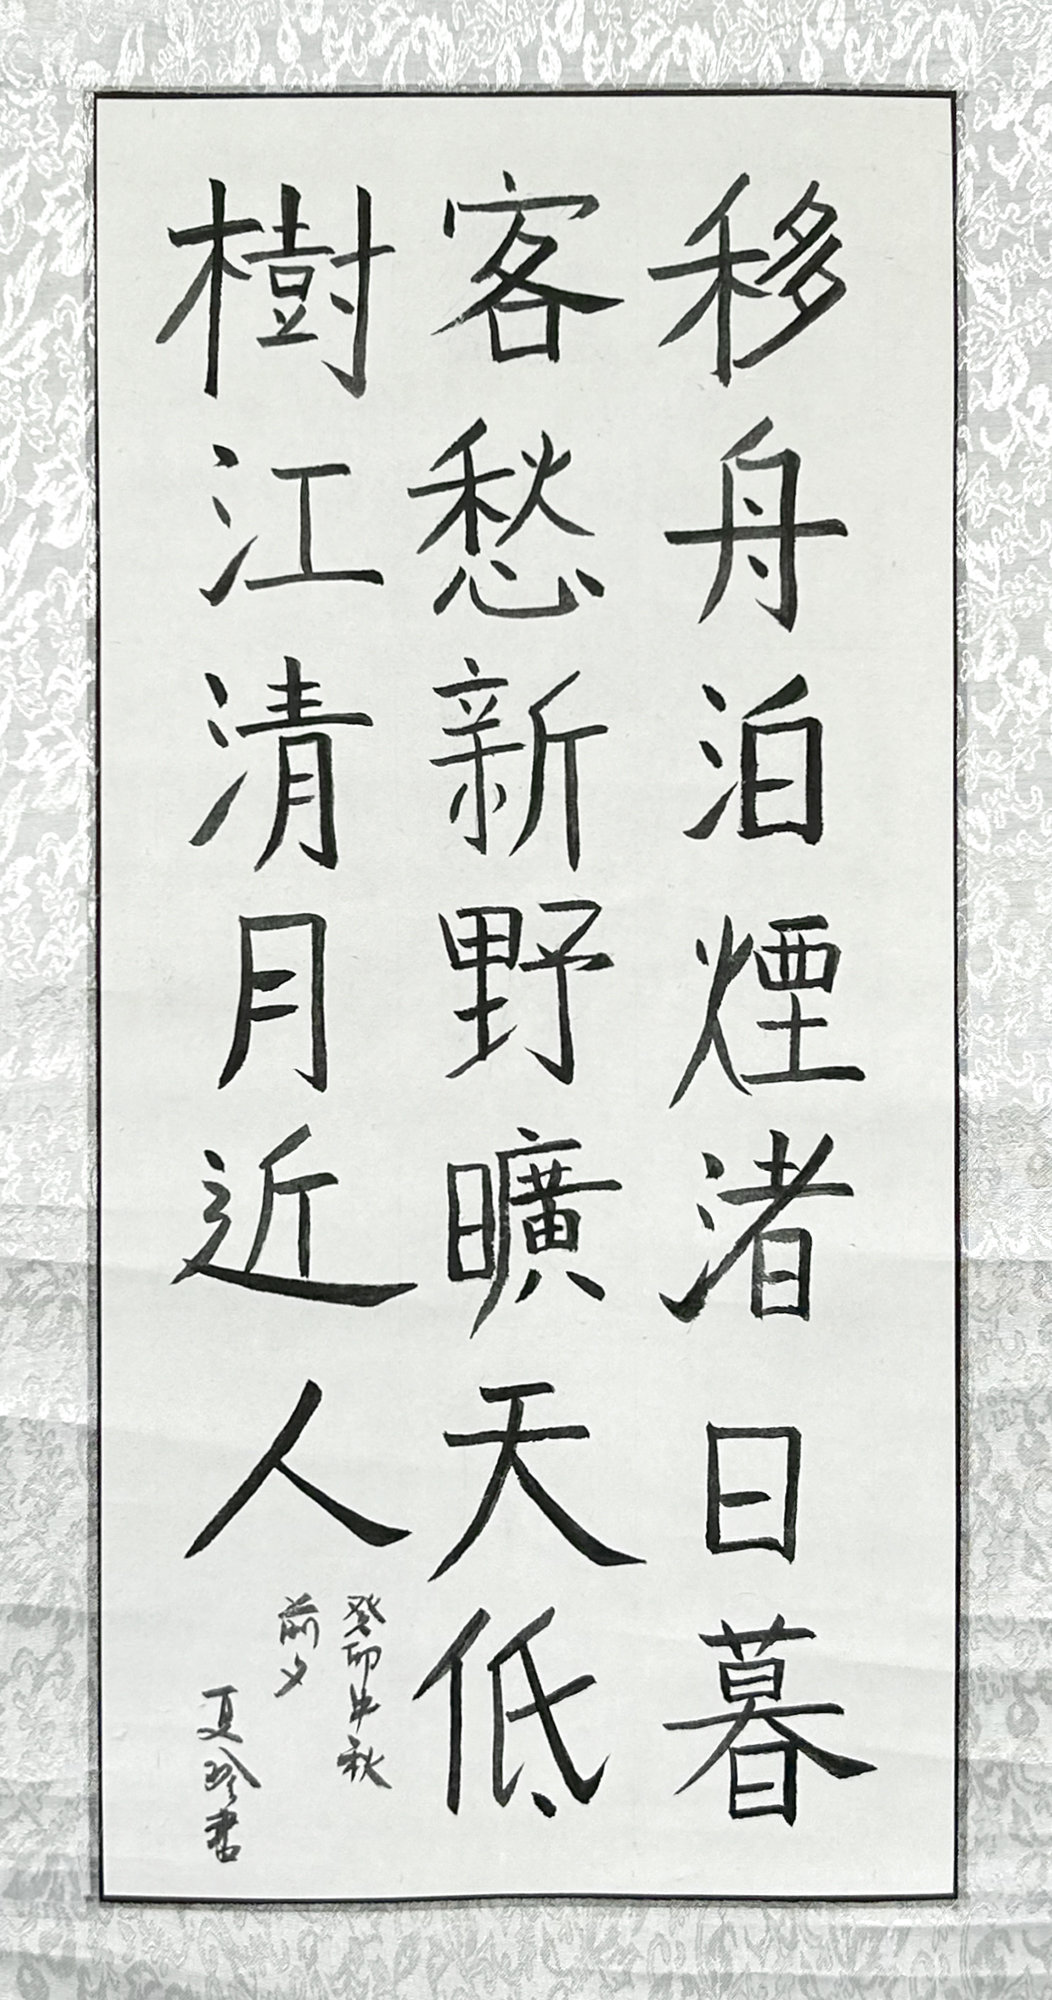 移舟泊煙渚日暮
客愁新野曠天低
樹江清月近人
癸卯中秋
前夕
夏珍書